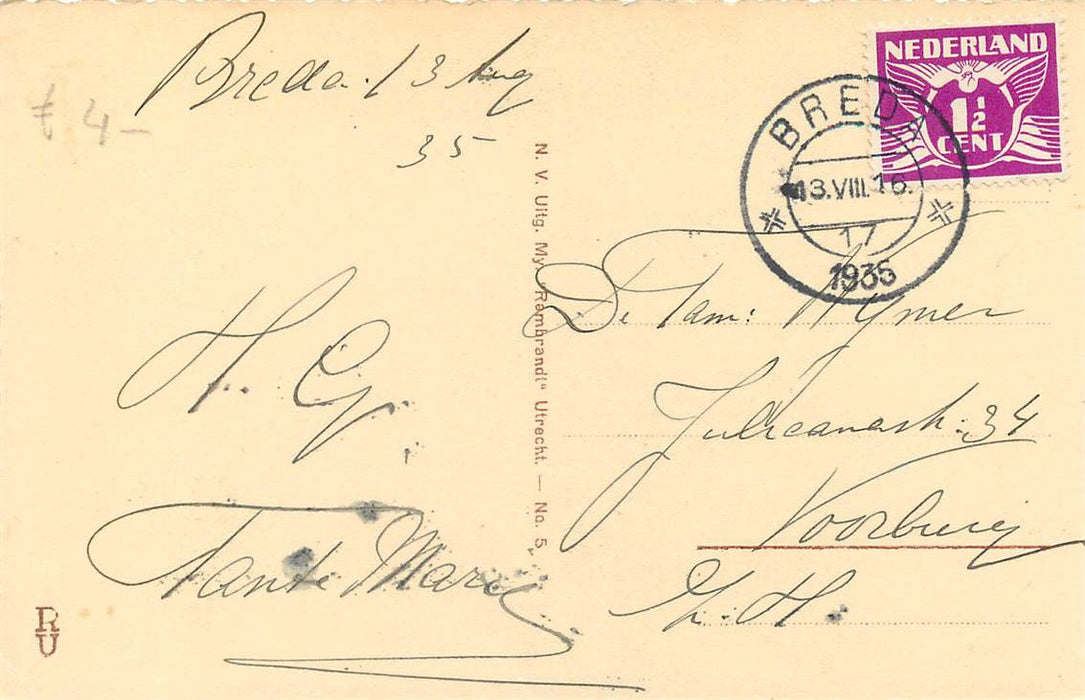 Breda 13 Aug
35
€ 4-
H. G.
Tante Marie
R
U
N. V. Uitg. My "Rembrandt" Utrecht. — No. 5
NEDERLAND
1½
CENT
BREDA
13.VIII.16.
17
1935
De Fam: Wymer
Julianastr: 34
Voorburg
Z. H.